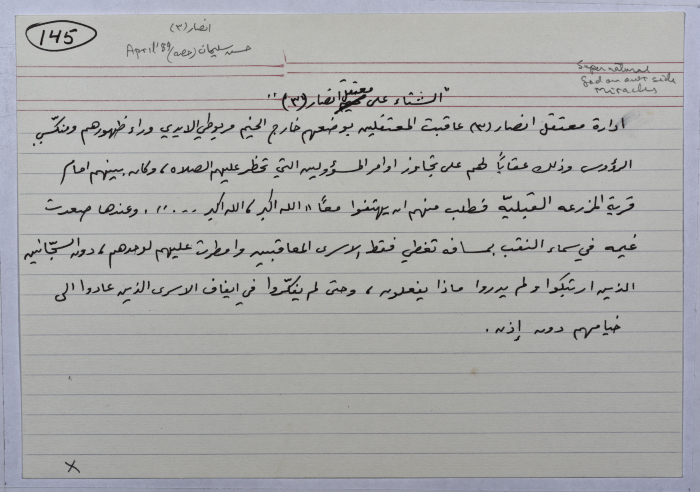 145
انصار (٣)
حسن سليمان (قصه) April '89
Supernatural
God on our side
Miracles
"الشتاء على معتقل انصار (٣)"
ادارة معتقل انصار (٣) عاقبت المعتقلين بوضعهم خارج الخيم مربوطي الايدي وراء ظهورهم ومنكّسي
الرؤوس وذلك عقابًا لهم على تجاوز اوامر المسؤولين التي تحظر عليهم الصلاه، وكان بينهم امام
قرية المزرعه القبليّة فطلب منهم ان يهتفوا معًا "الله اكبر، الله اكبر ....". وعندها صعدت
غيمه في سماء النقب بمسافه تغطي فقط الاسرى المعاقبين وامطرت عليهم لوحدهم، دون السجّانين
الذين ارتبكوا ولم يدروا ماذا يفعلون، وحتى لم يفكّروا في ايقاف الاسرى الذين عادوا الى
خيامهم دون إذن.
X